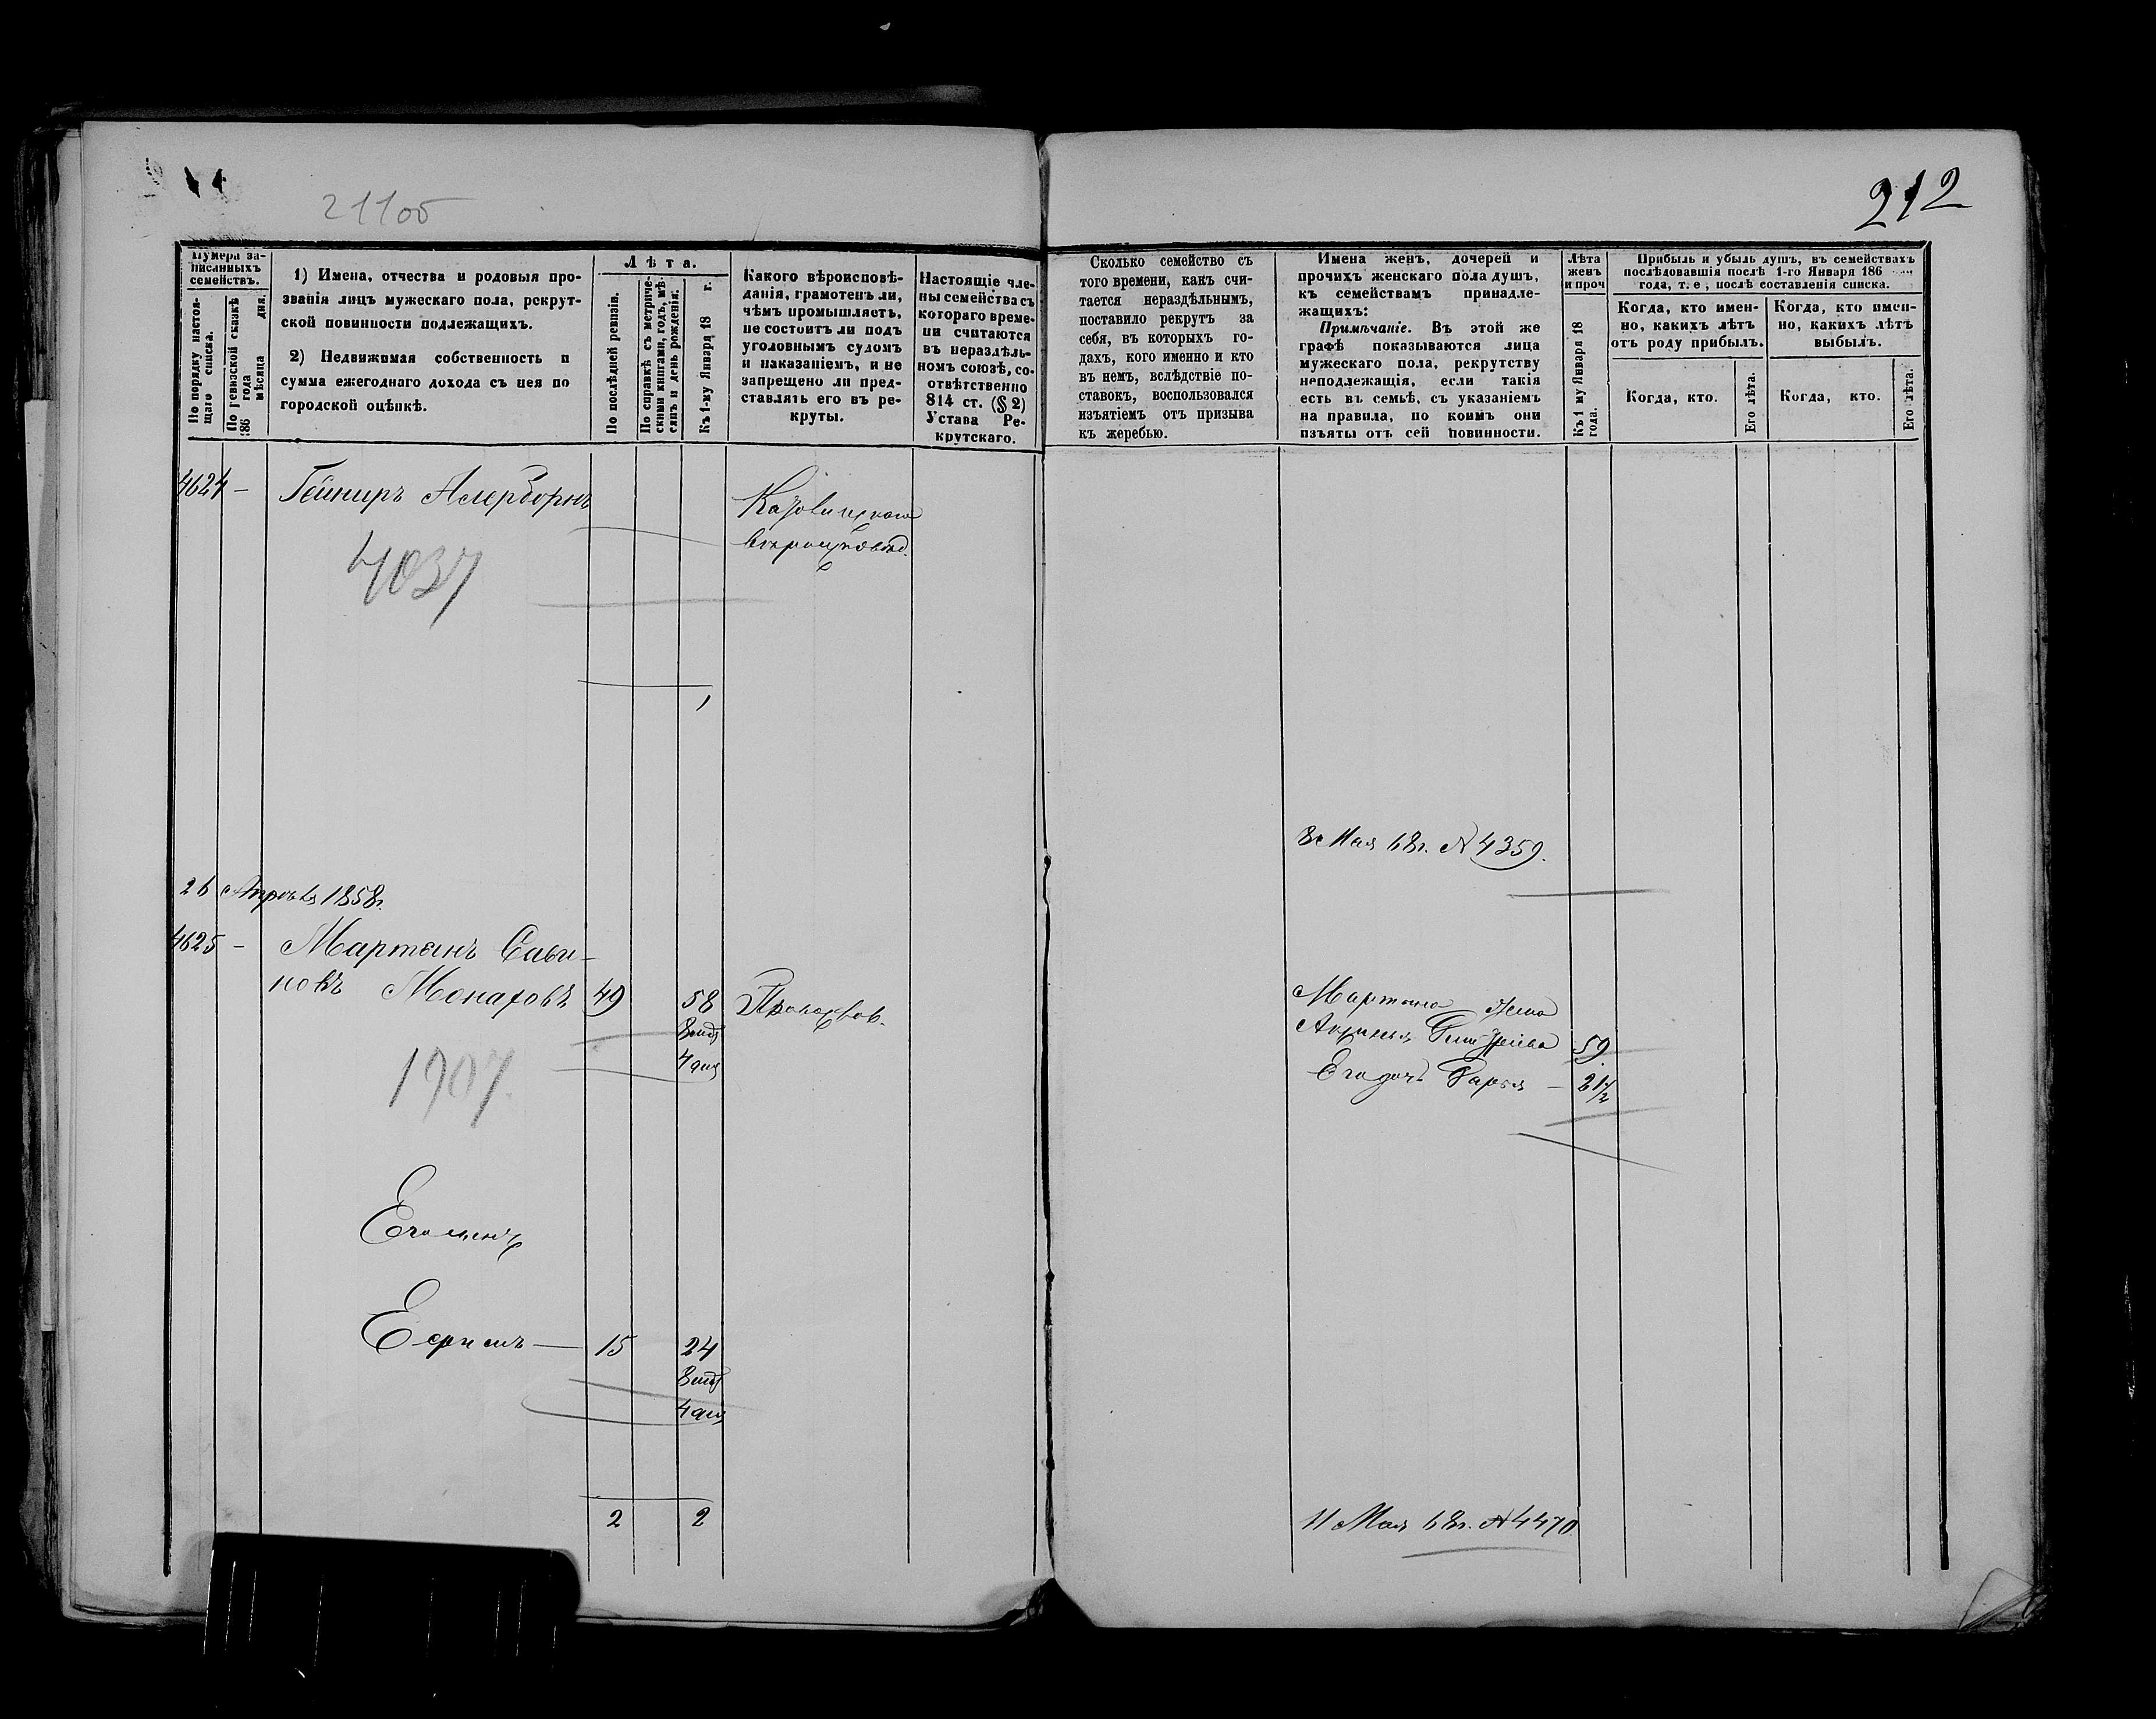 211об
212
Нумера записанныхъ семействъ.
По порядку настоящаго списка.
По ревизской сказкѣ 186 года мѣсяца дня.
1) Имена, отчества и родовыя прозванія лицъ мужескаго пола, рекрутской повинности подлежащихъ.
2) Недвижимая собственность и сумма ежегоднаго дохода съ нея по городской оцѣнкѣ.
Лѣта.
По послѣдней ревизіи.
По справкѣ съ метрическими книгами, годъ, мѣсяцъ и день рожденія.
Къ 1-му Января 18 г.
Какого вѣроисповѣданія, грамотенъ ли, чѣмъ промышляетъ, не состоитъ ли подъ уголовнымъ судомъ и наказаніемъ, и не запрещено ли представлять его въ рекруты.
Настоящіе члены семейства съ котораго времени считаются въ нераздѣльномъ союзѣ, соотвѣтственно 814 ст. (§ 2) Устава Рекрутскаго.
Сколько семейство съ того времени, какъ считается нераздѣльнымъ, поставило рекрутъ за себя, въ которыхъ годахъ, кого именно и кто въ немъ, вслѣдствіе поставокъ, воспользовался изъятіемъ отъ призыва къ жеребью.
Имена женъ, дочерей и прочихъ женскаго пола душъ, къ семействамъ принадлежащихъ:
Примѣчаніе. Въ этой же графѣ показываются лица мужескаго пола, рекрутству неподлежащія, если такія есть въ семьѣ, съ указаніемъ на правила, по коимъ они изъяты отъ сей повинности.
Лѣта женъ и проч
Къ 1 му Января 18 года.
Прибыль и убыль душъ, въ семействахъ послѣдовавшія послѣ 1-го Января 186 года, т. е, послѣ составленія списка.
Когда, кто именно, какихъ лѣтъ отъ роду прибылъ.
Когда, кто именно, какихъ лѣтъ выбылъ.
Когда, кто.
Его лѣта.
Когда, кто.
Его лѣта.
4624 – Гейниръ
4037
1
8 Мая 68г. № 4359.
26 Апрѣля 1858г.
4625 – Мартынъ Сави-
новъ Монаховъ 49 58
4 дня
1907
Мартына жена
59
Его дочь Дарья – 21 1/2
Его сынъ
Ефимъ — 15 24
4 дня
2 2
11 Мая 68г. № 4470